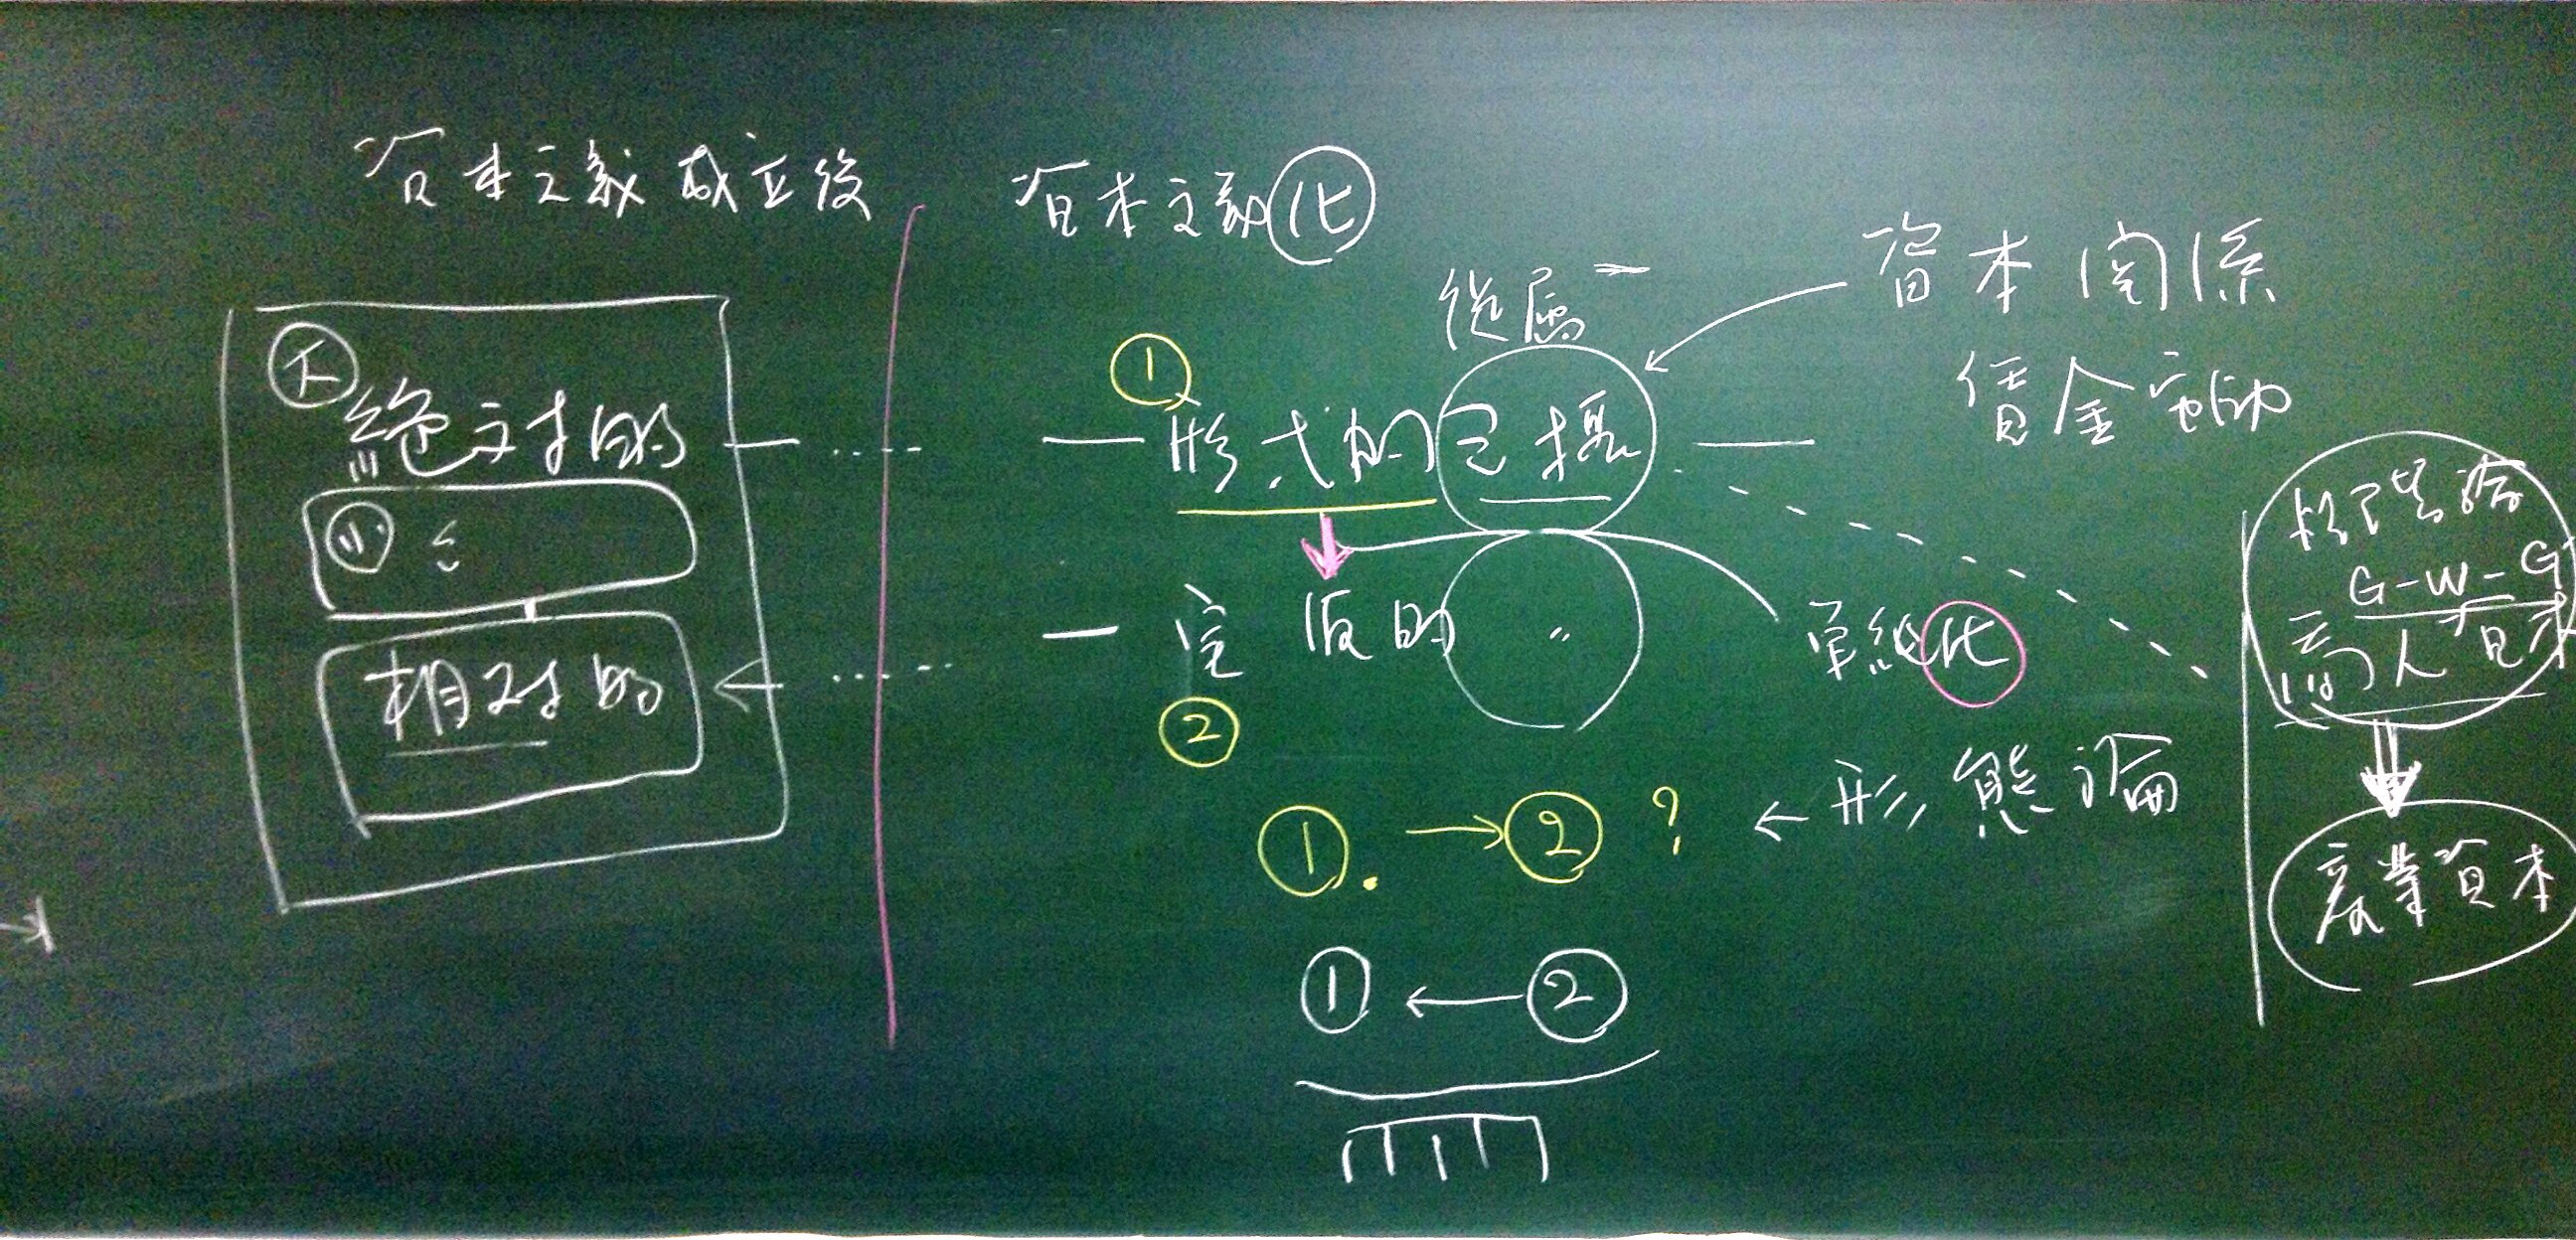 資本主義成立後
資本主義化
従属
資本関係
賃金労働
①
大
絶対的
形式的包摂
小 〃
相対的
実質的 〃
②
単純化
① → ② ?
← 形態論
① ← ②
G−W−G'
商人資本
産業資本